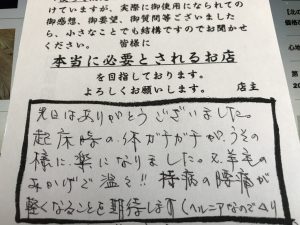 けていますが、実際に御使用になられての
御感想、御要望、御質問等ございました
ら、小さなことでも結構ですのでお聞か
せください。 皆様に
本当に必要とされるお店
を目指しております。
よろしくお願いします。 店主
先日はありがとうございました。
起床時の体ガチガチが、うその
様に楽になりました。又、羊毛の
おかげで温々!! 持病の腰痛が
軽くなることを期待します(ヘルニアなので